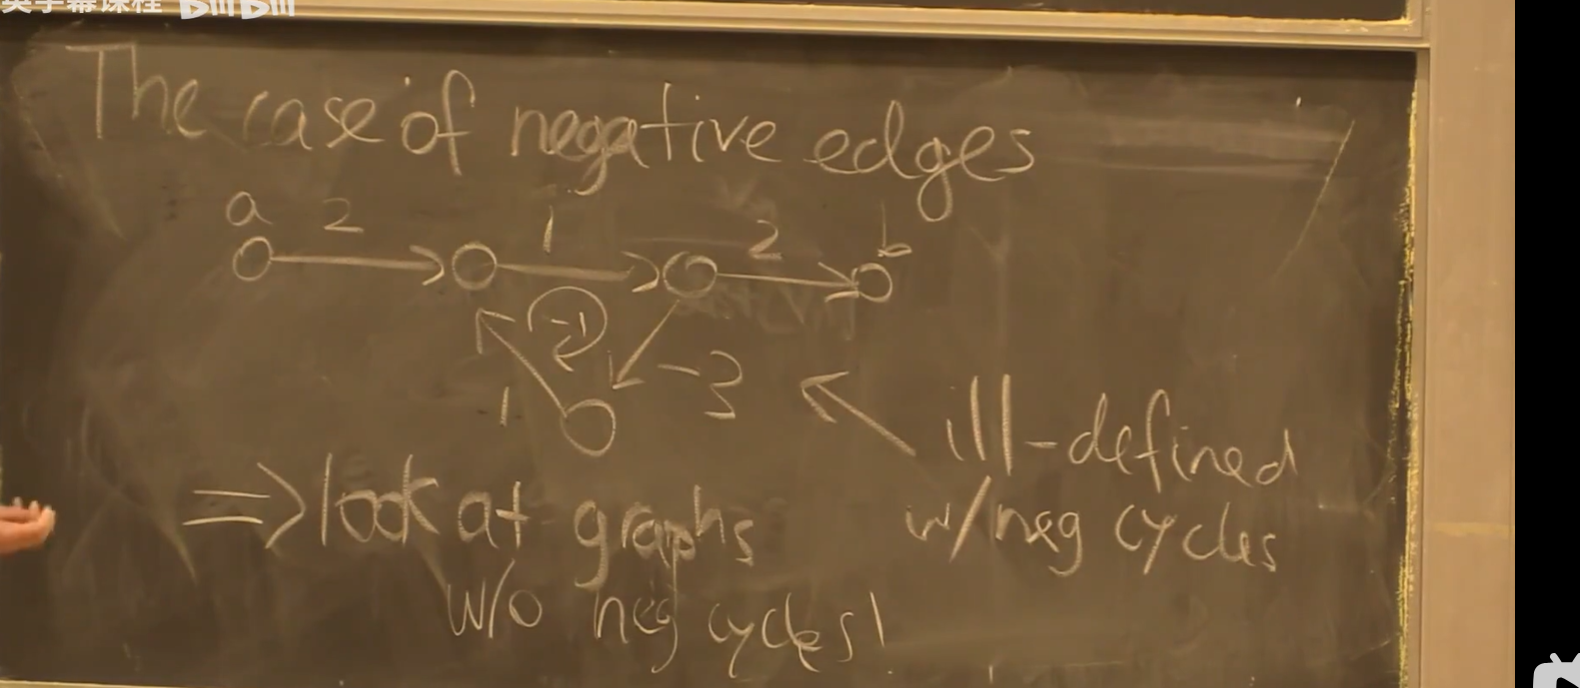 英字幕课程 bilibili
The case of negative edges
a 2 1 2 b
-1
1 -3
ill-defined
w/neg cycles
=> look at graphs
w/o neg cycles!